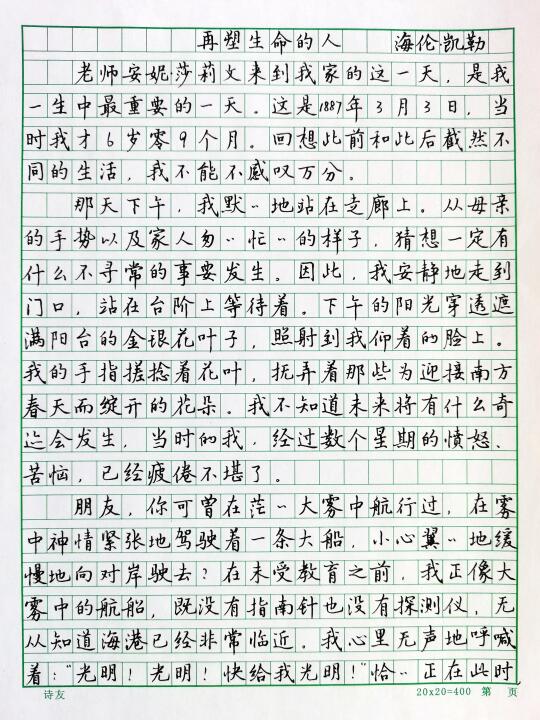 再塑生命的人 海伦·凯勒
老师安妮·莎莉文来到我家的这一天，是我
一生中最重要的一天。这是1887年3月3日，当
时我才6岁零9个月。回想此前和此后截然不
同的生活，我不能不感叹万分。
那天下午，我默〃地站在走廊上。从母亲
的手势以及家人匆〃忙〃的样子，猜想一定有
什么不寻常的事要发生。因此，我安静地走到
门口，站在台阶上等待着。下午的阳光穿透遮
满阳台的金银花叶子，照射到我仰着的脸上。
我的手指搓捻着花叶，抚弄着那些为迎接南方
春天而绽开的花朵。我不知道未来将有什么奇
迹会发生，当时的我，经过数个星期的愤怒、
苦恼，已经疲倦不堪了。
朋友，你可曾在茫〃大雾中航行过，在雾
中神情紧张地驾驶着一条大船，小心翼〃地缓
慢地向对岸驶去？在未受教育之前，我正像大
雾中的航船，既没有指南针也没有探测仪，无
从知道海港已经非常临近。我心里无声地呼喊
着：“光明！光明！快给我光明！”恰〃正在此时
诗友 20x20=400 第 页